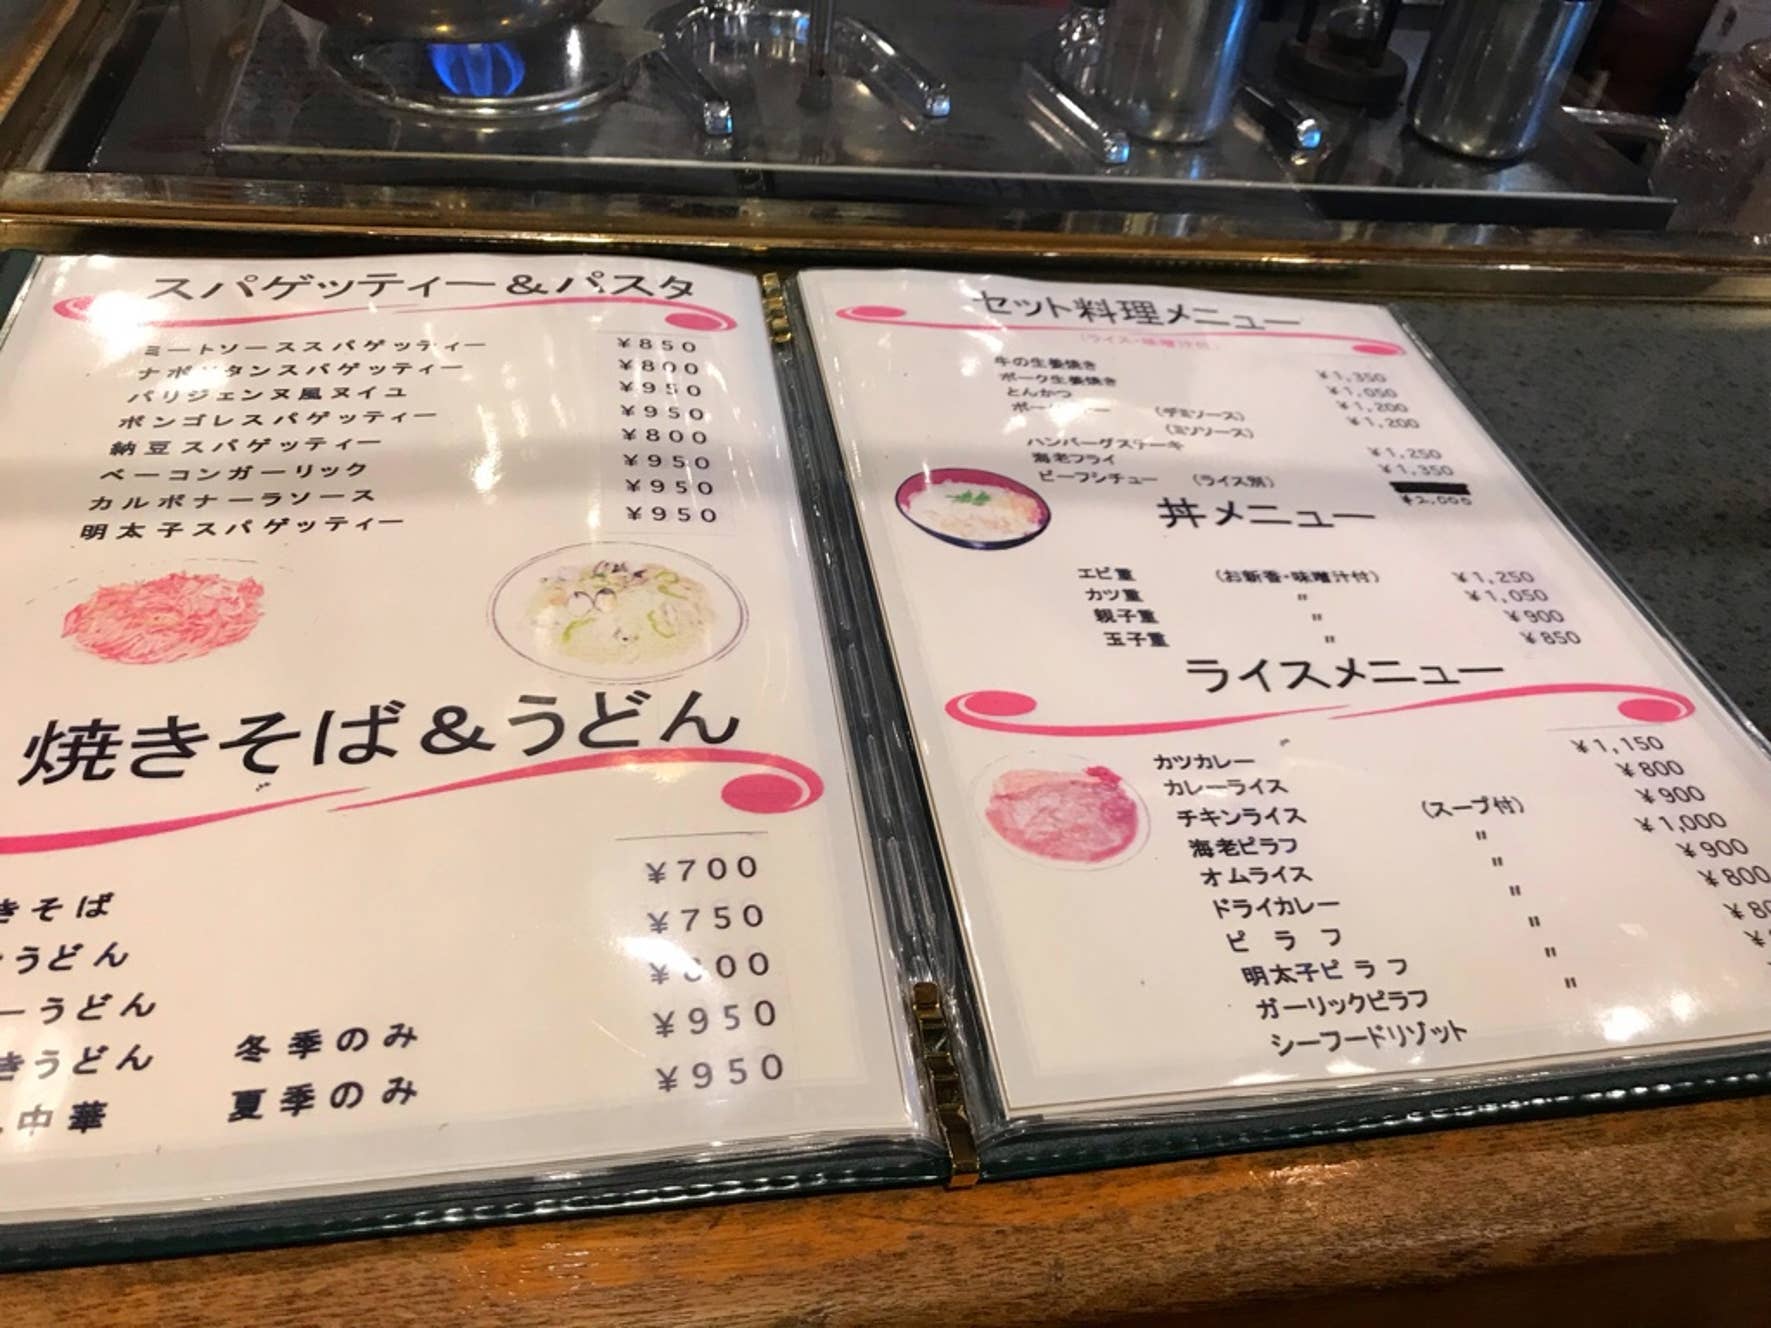 スパゲッティー&パスタ
ミートソーススパゲッティー ¥850
ナポリタンスパゲッティー ¥800
パリジェンヌ風ヌイユ ¥950
ボンゴレスパゲッティー ¥950
納豆スパゲッティー ¥800
ベーコンガーリック ¥950
カルボナーラソース ¥950
明太子スパゲッティー ¥950
焼きそば&うどん
きそば ¥700
うどん ¥750
ーうどん
きうどん 冬季のみ ¥950
中華 夏季のみ ¥950
セット料理メニュー
(ライス・味噌汁付)
牛の生姜焼き ¥1,350
ポーク生姜焼き ¥1,050
とんかつ ¥1,200
(デミソース) ¥1,200
(ミソソース)
ハンバーグステーキ ¥1,250
海老フライ ¥1,350
ビーフシチュー (ライス別) ¥2,000
丼メニュー
エビ重 (お新香・味噌汁付) ¥1,250
カツ重 〃 ¥1,050
親子重 〃 ¥900
玉子重 〃 ¥850
ライスメニュー
カツカレー ¥1,150
カレーライス ¥800
チキンライス (スープ付) ¥900
海老ピラフ 〃 ¥1,000
オムライス 〃 ¥900
ドライカレー 〃 ¥800
ピラフ 〃
明太子ピラフ 〃
ガーリックピラフ 〃
シーフードリゾット